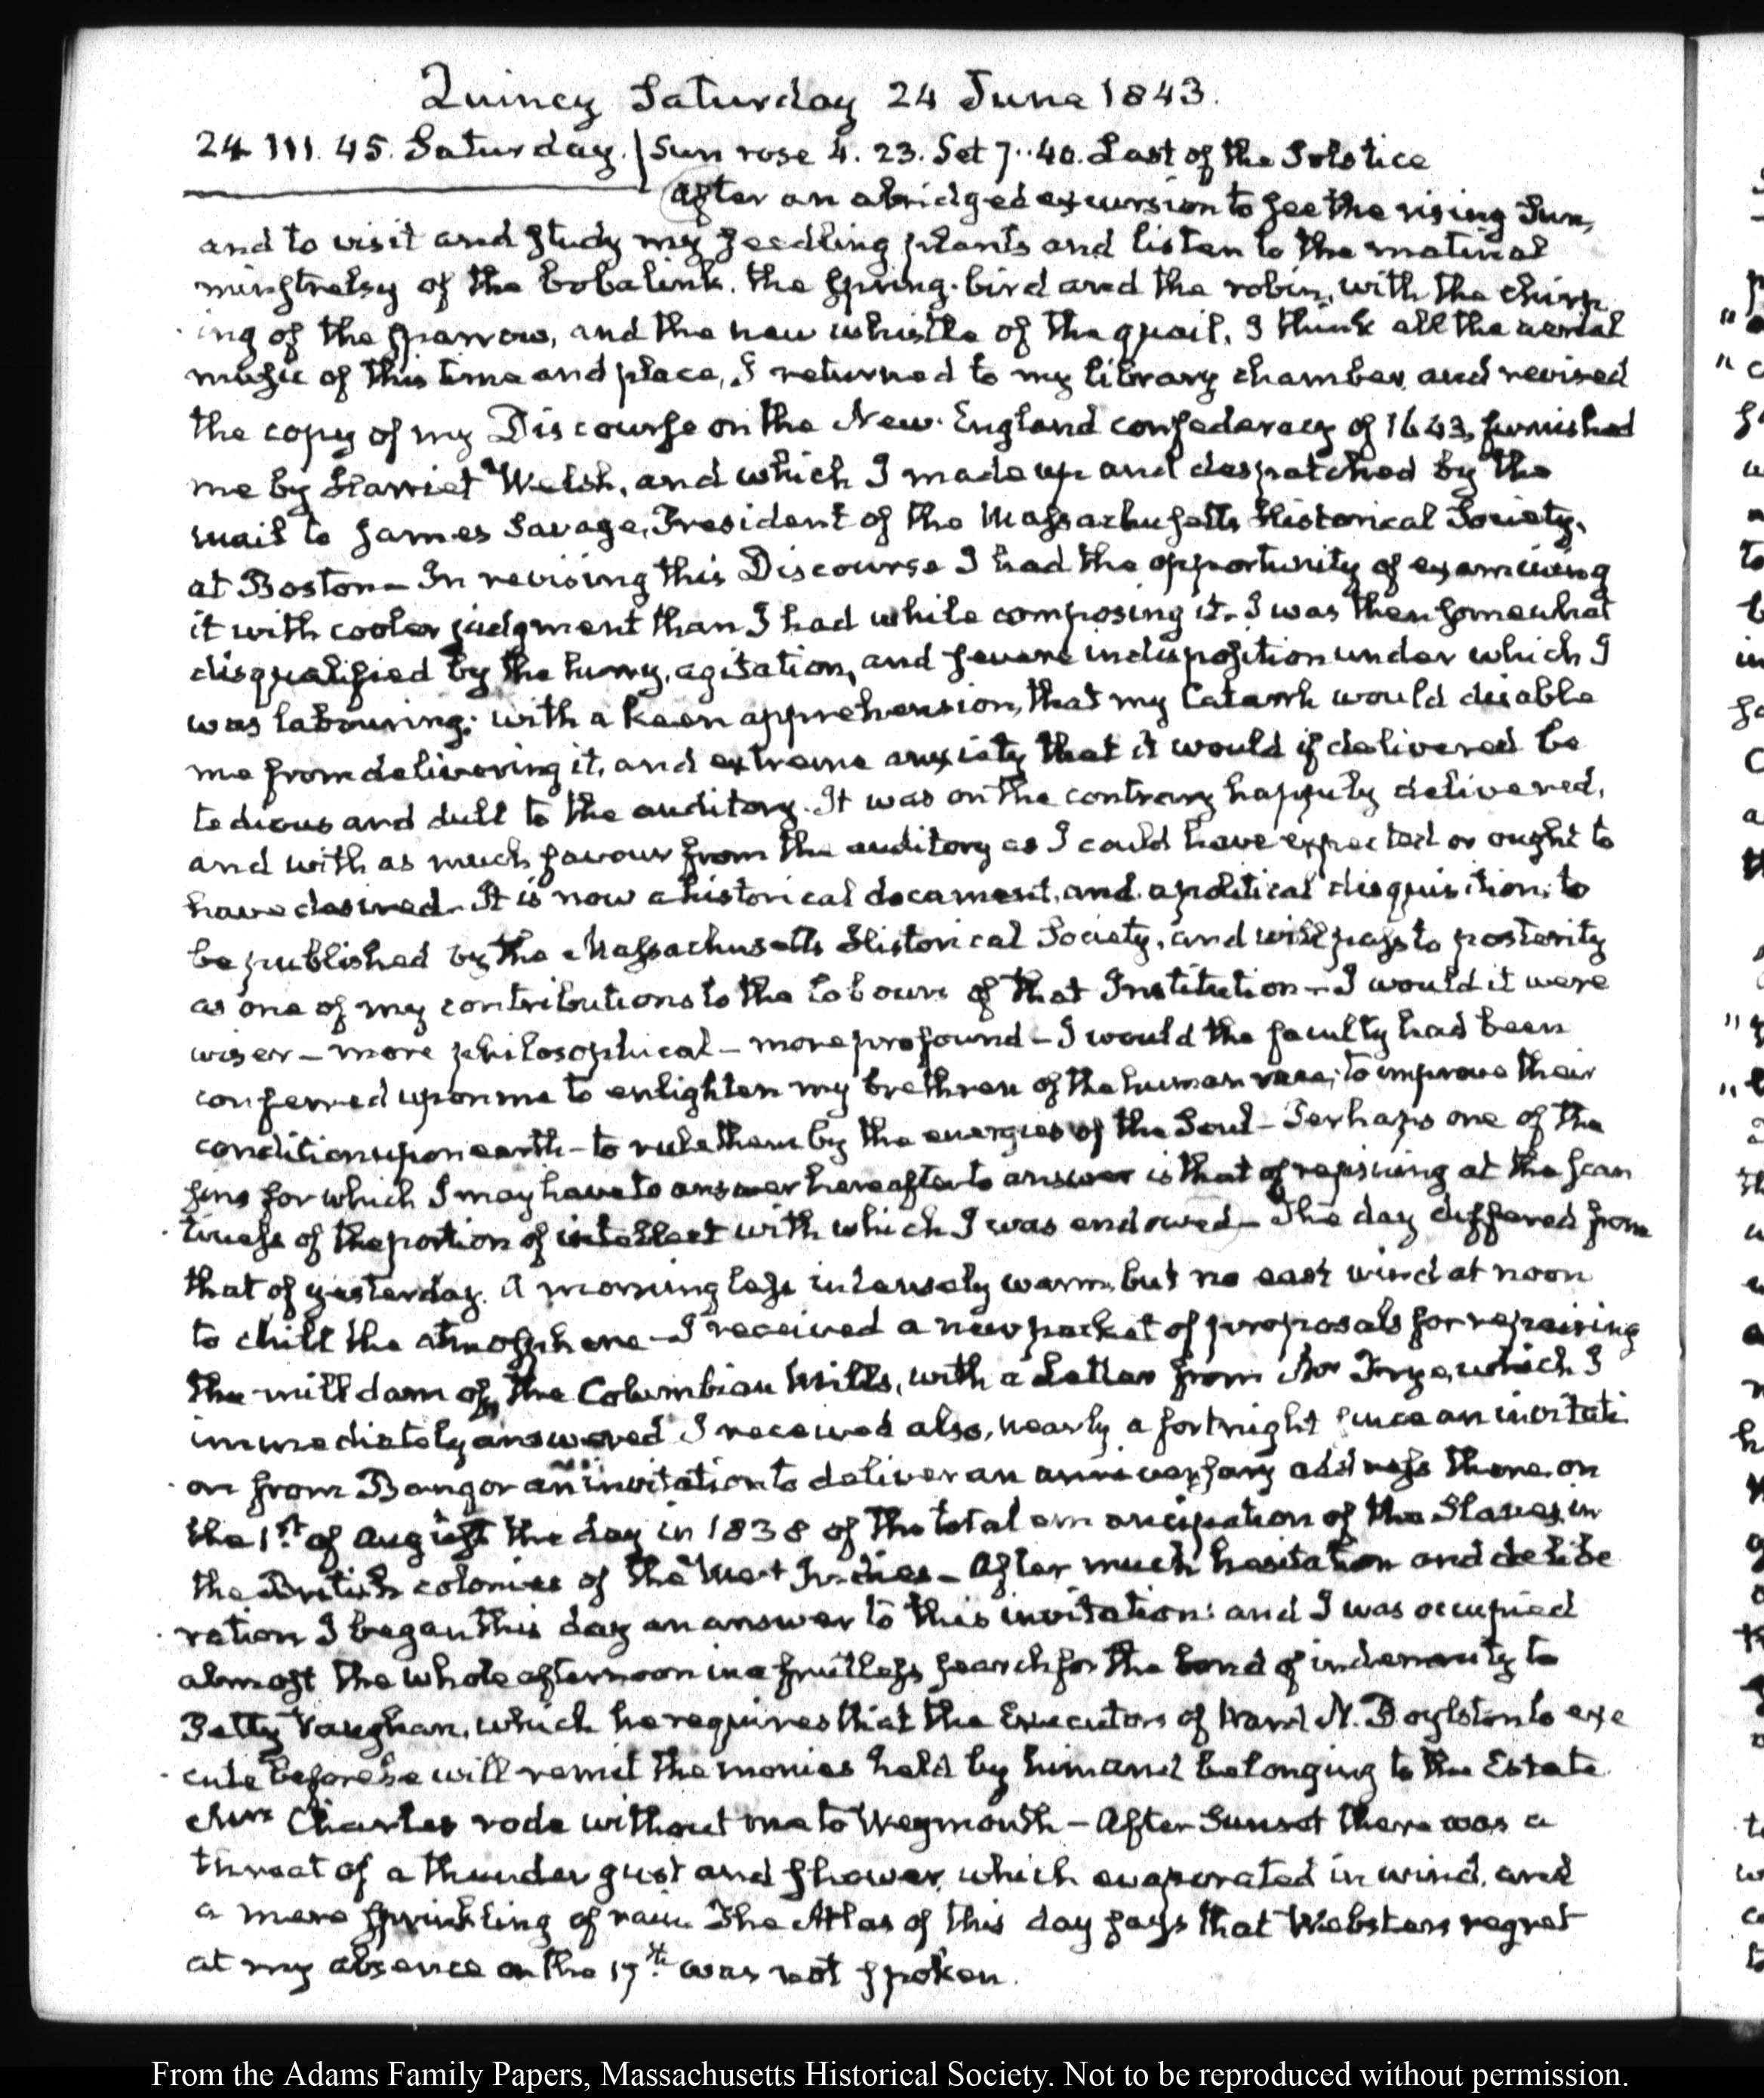 Quincy Saturday 24 June 1843.
24. III. 45. Saturday. Sun rose 4. 23. Set 7..40. Last of the Solstice
After an abridged excursion to see the rising Sun,
and to visit and study my seedling plants and listen to the matinal
minstrelsy of the bobalink. the spring-bird and the robin, with the chirp
ing of the sparrow, and the new whistle of the quail, I think all the aerial
music of this time and place, I returned to my library chamber and revised
the copy of my Discourse on the New-England confederacy of 1643, furnished
me by Harriet Welsh, and which I made up and despatched by the
mail to James Savage, President of the Massachusetts Historical Society,
at Boston— In revising this Discourse I had the opportunity of examining
it with cooler judgment than I had while composing it. I was then somewhat
disqualified by the hurry, agitation, and severe indisposition under which I
was labouring: with a keen apprehension, that my Catarrh would disable
me from delivering it, and extreme anxiety that it would if delivered be
tedious and dull to the auditory. It was on the contrary happily delivered,
and with as much favour from the auditory as I could have expected or ought to
have desired. It is now a historical document, and a political disquisition, to
be published by the Massachusetts Historical Society, and will pass to posterity
as one of my contributions to the labours of that Institution— I would it were
wiser— more philosophical— more profound— I would the faculty had been
conferred upon me to enlighten my brethren of the human race, to improve their
condition upon earth— to rule them by the energies of the Soul— Perhaps one of the
sins for which I may have to answer hereafter to answer is that of repining at the scan
tiness of the portion of intellect with which I was endowed— The day differed from
that of yesterday. A morning less intensely warm, but no east wind at noon
to chill the atmosphere— I received a new packet of proposals for repairing
the mill dam of the Columbian Mills, with a Letter from Mr Frye, which I
immediately answered I received also, nearly a fortnight since an invitati
on from Bangor an invitation to deliver an anniversary address there on
the 1st. of August the day in 1838 of the total emancipation of the Slaves in
the British colonies of the West Indies— After much hesitation and delibe
ration I began this day an answer to this invitation: and I was occupied
almost the whole afternoon in a fruitless search for the bond of indemnity to
Petty Vaughan, which he requires that the Executors of Ward N. Boylston to exe
cute before he will remit the monies held by him and belonging to the Estate.
Mrs Charles rode without me to Weymouth— After Sunset there was a
threat of a thunder gust and shower, which evaporated in wind, and
a mere sprinkling of rain. The Atlas of this day says that Websters regret
at my absence on the 17th. was not spoken.
From the Adams Family Papers, Massachusetts Historical Society. Not to be reproduced without permission.